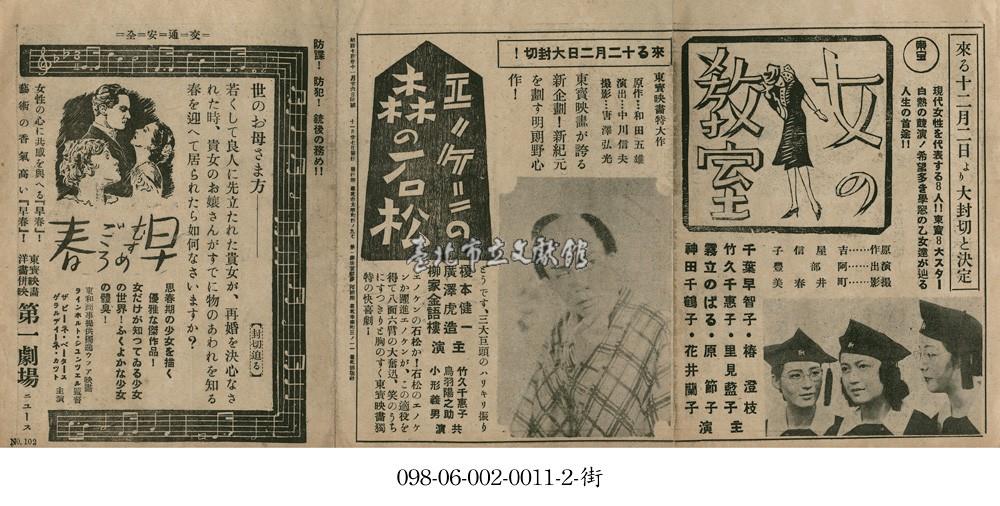 來る十二月二日より大封切と決定
現代女性を代表する8人!!東寶8大スター
白熱の競演!希望多き學窓の乙女達が辿る
人生の首途!!
女の教室
原作……吉屋信子
演出……阿部豊
撮影
千葉早智子・椿澄枝
竹久千惠子・里見藍子
霧立のぼる・原節子
神田千鶴子・花井蘭子
主演
來る十二月二日大封切!
東寳映畫特大作
原作…和田五雄
演出…中川信夫
撮影…唐澤弘光
東寳映畫が誇る
新企劃!新紀元
を劃す明朗野心
作!
エノケンの
森の石松
どうです、三大巨頭のハリキリ振り
榎本健一
廣澤虎造
柳家金語樓
主演
竹久千惠子
鳥羽陽之助
小形義男
共演
エノケンの石松か!石松のエノケ
ンか躍進エノケンが、この適役を
得て八面六臂の大奮迅、笑のうち
にすつきりと胸のすく東寳映畫獨
特の快喜劇!
防諜!防犯!銃後の務め!!
全=安=通=交
世のお母さま方――
若くして良人に先立たれた貴女が、再婚を決心なさ
れた時、貴女のお孃さんがすでに物のあわれを知る
春を迎へて居られたら如何なさいますか?
【封切迫る】
早春
むすめごころ
思春期の少女を描く
優雅な傑作品!
女だけが知つてゐる少女
の世界!ふくよかな少女
の體臭!
東和商事提供獨逸ウファ映畫
ラインホルト・シュンツェル監督
ザビーネ・ペータース
ゲラルディーネ・カット
主演
女性の心に共感を與へる『早春』!
藝術の香氣高い『早春』!
東寳映畫
洋畫併映
第一劇場
ニュース
No. 102
臺北市立文獻館
098-06-002-0011-2-街